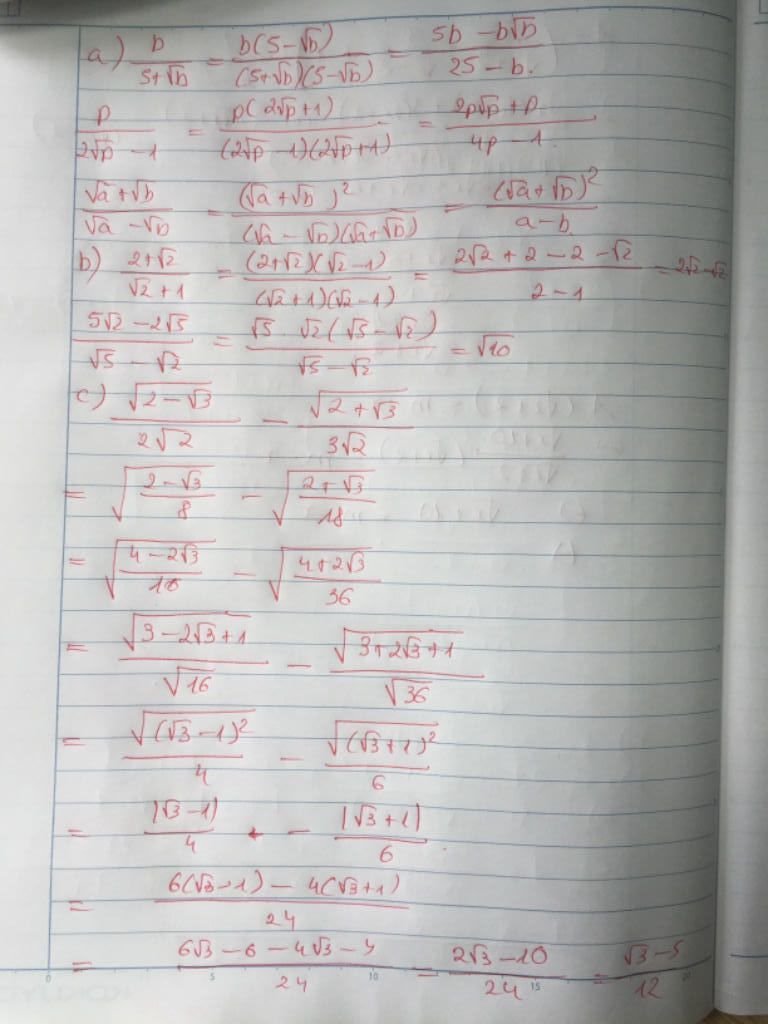 a) b/(5+√b) = b(5-√b)/((5+√b)(5-√b)) = (5b - b√b)/(25 - b.)
p/(2√p - 1) = p(2√p+1)/((2√p - 1)(2√p+1)) = (2p√p + p)/(4p - 1.)
(√a + √b)/(√a - √b) = (√a + √b)²/((√a - √b)(√a + √b)) = (√a + √b)²/(a - b)
b) (2+√2)/(√2 + 1) = (2+√2)(√2 - 1)/((√2+1)(√2 - 1)) = (2√2 + 2 - 2 - √2)/(2 - 1) = 2√2 - √2
(5√2 - 2√5)/(√5 - √2) = √5 . √2(√5 - √2)/(√5 - √2) = √10
c) √(2 - √3)/(2√2) - √(2 + √3)/(3√2)
= √((2 - √3)/8) - √((2 + √3)/18)
= √((4 - 2√3)/16) - √((4 + 2√3)/36)
= √(3 - 2√3 + 1)/√16 - √(3 + 2√3 + 1)/√36
= √((√3 - 1)²)/4 - √((√3 + 1)²)/6
= |√3 - 1|/4 - |√3 + 1|/6.
= (6(√3 - 1) - 4(√3 + 1))/24
= (6√3 - 6 - 4√3 - 4)/24 = (2√3 - 10)/24 = (√3 - 5)/12
0 5 10 15 20